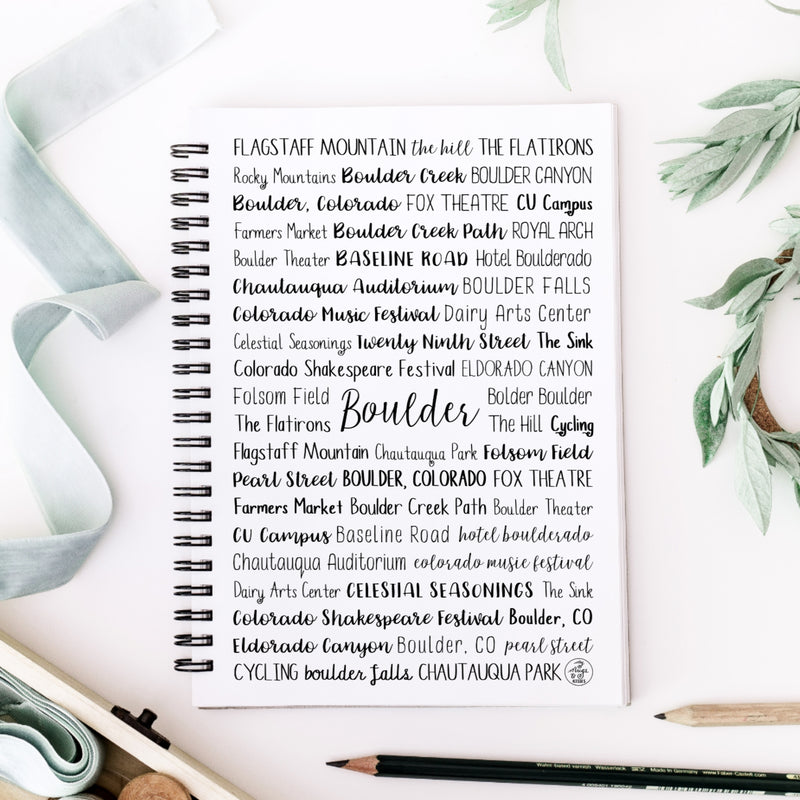 FLAGSTAFF MOUNTAIN the hill THE FLATIRONS
Rocky Mountains Boulder Creek BOULDER CANYON
Boulder, Colorado FOX THEATRE CU Campus
Farmers Market Boulder Creek Path ROYAL ARCH
Boulder Theater BASELINE ROAD Hotel Boulderado
Chautauqua Auditorium BOULDER FALLS
Colorado Music Festival Dairy Arts Center
Celestial Seasonings Twenty Ninth Street The Sink
Colorado Shakespeare Festival ELDORADO CANYON
Folsom Field Boulder Bolder Boulder
The Flatirons The Hill Cycling
Flagstaff Mountain Chautauqua Park Folsom Field
Pearl Street BOULDER, COLORADO FOX THEATRE
Farmers Market Boulder Creek Path Boulder Theater
CU Campus Baseline Road hotel boulderado
Chautauqua Auditorium colorado music festival
Dairy Arts Center CELESTIAL SEASONINGS The Sink
Colorado Shakespeare Festival Boulder, CO
Eldorado Canyon Boulder, CO pearl street
CYCLING boulder falls CHAUTAUQUA PARK
Made in Germany www.Faber-Castell.com